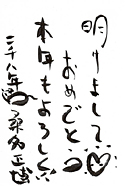 明けまして
おめでとう
本年もよろしく
二千八年